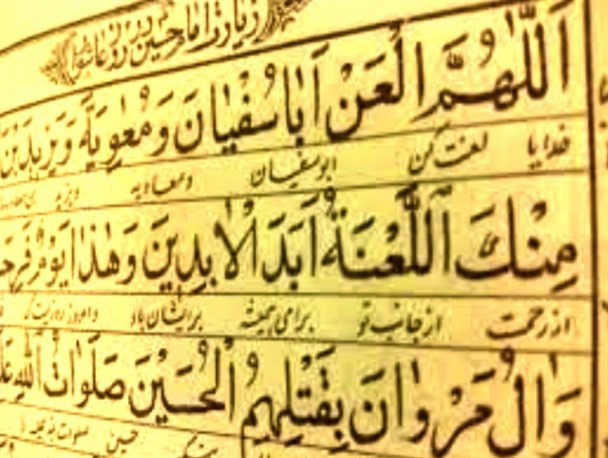 زیارت امام حسین در روز عاشورا
اَللّٰهُمَّ الْعَنْ اَبٰا سُفْیٰانَ وَ مُعٰوِیَةَ وَ یَزیدَ بْنَ
خدایا لعنت کن ابوسفیان و معاویه و یزید
مِنْكَ اَللَّعْنَةُ اَبَدَ الْاٰبِدینَ وَ هٰذٰا یَوْمٌ فَرِحَ
از جانب تو برای همیشه برایشان باد
وَ اٰلُ مَرْوٰانَ بِقَتْلِهِمُ الْحُسَیْنَ صَلَوٰاتُ اللّٰهِ
حسین صلوات